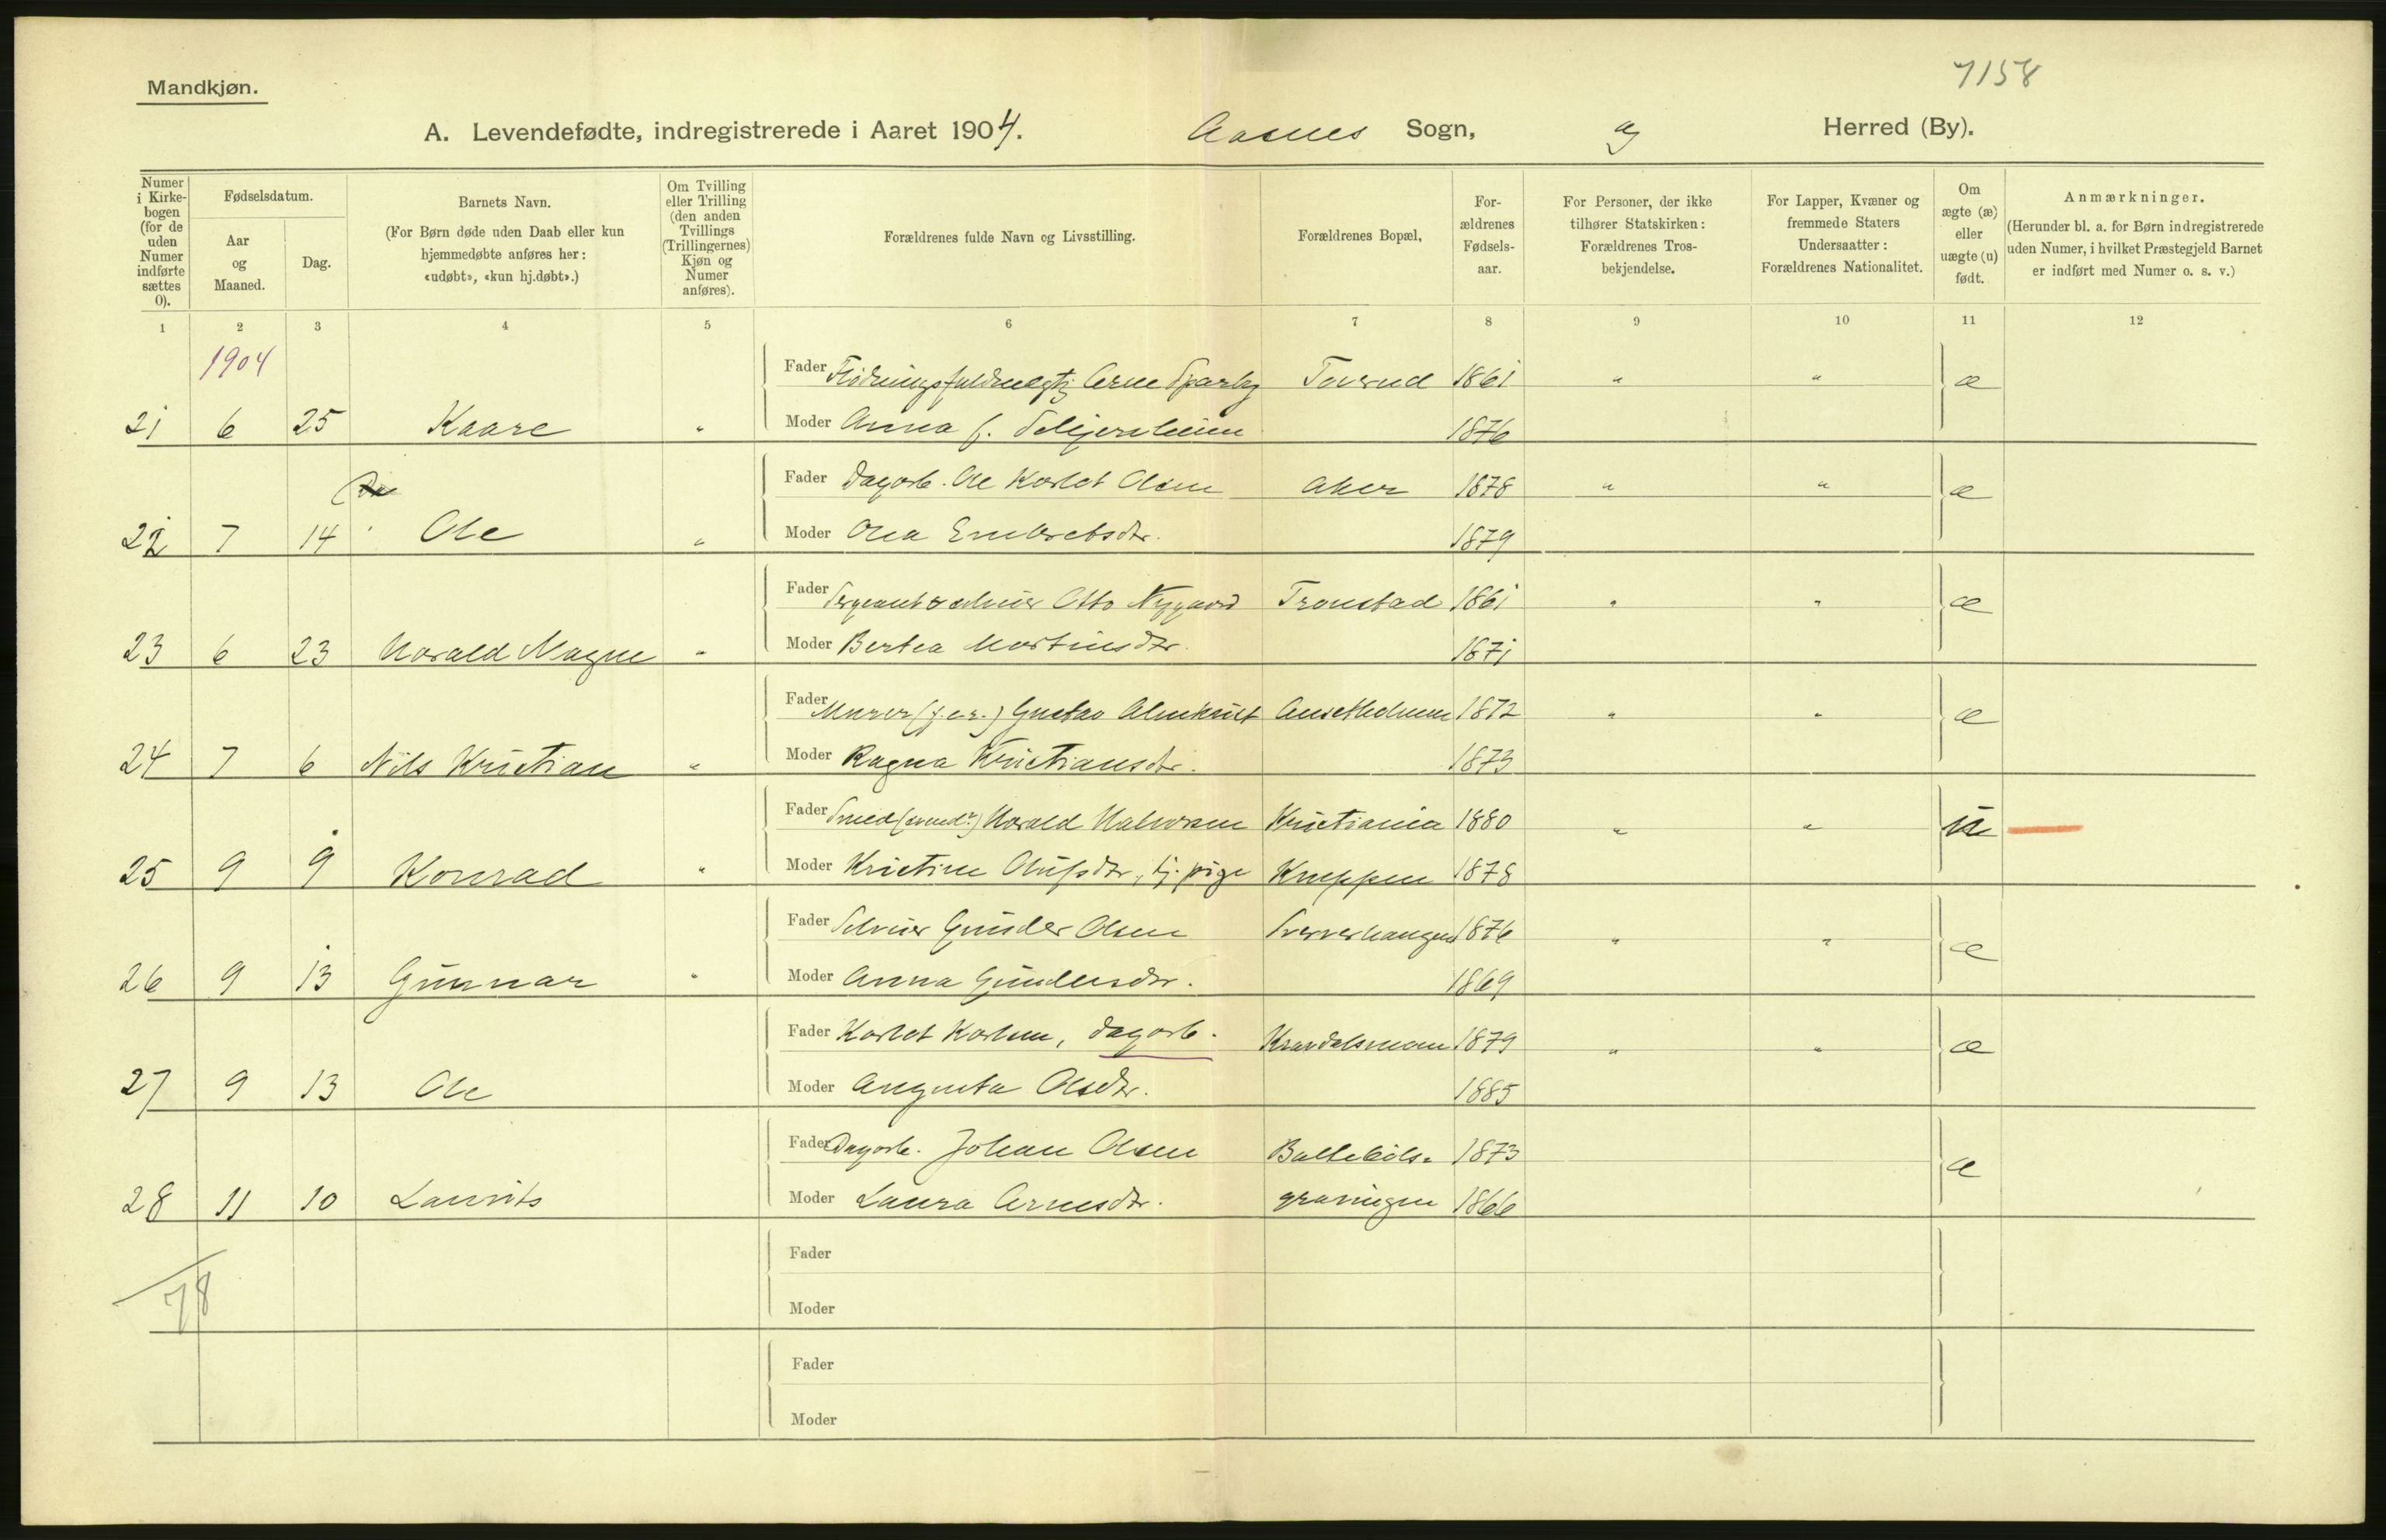 7158
Mandkjøn.
A. Levendefødte, indregistrerede i Aaret 1904. Aasnes Sogn, Herred (By).
Numer i Kirke-bogen (for de uden Numer indførte sættes 0).
Fødselsdatum.
Aar og Maaned.
Dag.
Barnets Navn.
(For Børn døde uden Daab eller kun hjemmedøbte anføres her: «udøbt», «kun hj.døbt».)
Om Tvilling eller Trilling (den anden Tvillings (Trillingernes) Kjøn og Numer anføres).
Forældrenes fulde Navn og Livsstilling.
Forældrenes Bopæl,
For-ældrenes Fødsels-aar.
For Personer, der ikke tilhører Statskirken: Forældrenes Tros-bekjendelse.
For Lapper, Kvæner og fremmede Staters Undersaatter: Forældrenes Nationalitet.
Om ægte (æ) eller uægte (u) født.
Anmærkninger.
(Herunder bl. a. for Børn indregistrerede uden Numer, i hvilket Præstegjeld Barnet er indført med Numer o. s. v.)
1 2 3 4 5 6 7 8 9 10 11 12
1904
Fader Fløtningsfuldmegtg Arne Sparby 1861 " " æ
21 6 25 Kaare " Moder Anna f. 1876
Fader Dagarb. Ole Karlot Olsen Aker 1878 " " æ
22 7 14 Ole " Moder Olea Embretsdtr. 1879
Fader Sergeant & selveier Otto Nygaard Tronstad 1861 " " æ
23 6 23 Harald Magne " Moder Bertea Martinsdtr. 1871
Fader Murer (f.e.r.) Gustav Almkvist 1872 " " æ
24 7 6 Nils Kristian " Moder Ragna Kristiansdtr. 1873
Fader Smed (svend?) Harald Halvorsen Kristiania 1880 " " u
25 9 9 Konrad " Moder Kristine Olufsdtr, tj. pige Kneppen 1878
Fader Selveier Gunder Olsen 1876 " " æ
26 9 13 Gunnar " Moder Anna Gundersdtr. 1869
Fader Karlot Karlsen, dagarb. 1879 " " æ
27 9 13 Ole Moder Augusta Olsdtr. 1885
Fader Dagarb. Johan Olsen 1873 æ
28 11 10 Laurits Moder Laura Arnesdtr. 1866
Fader
78
Moder
Fader
Moder